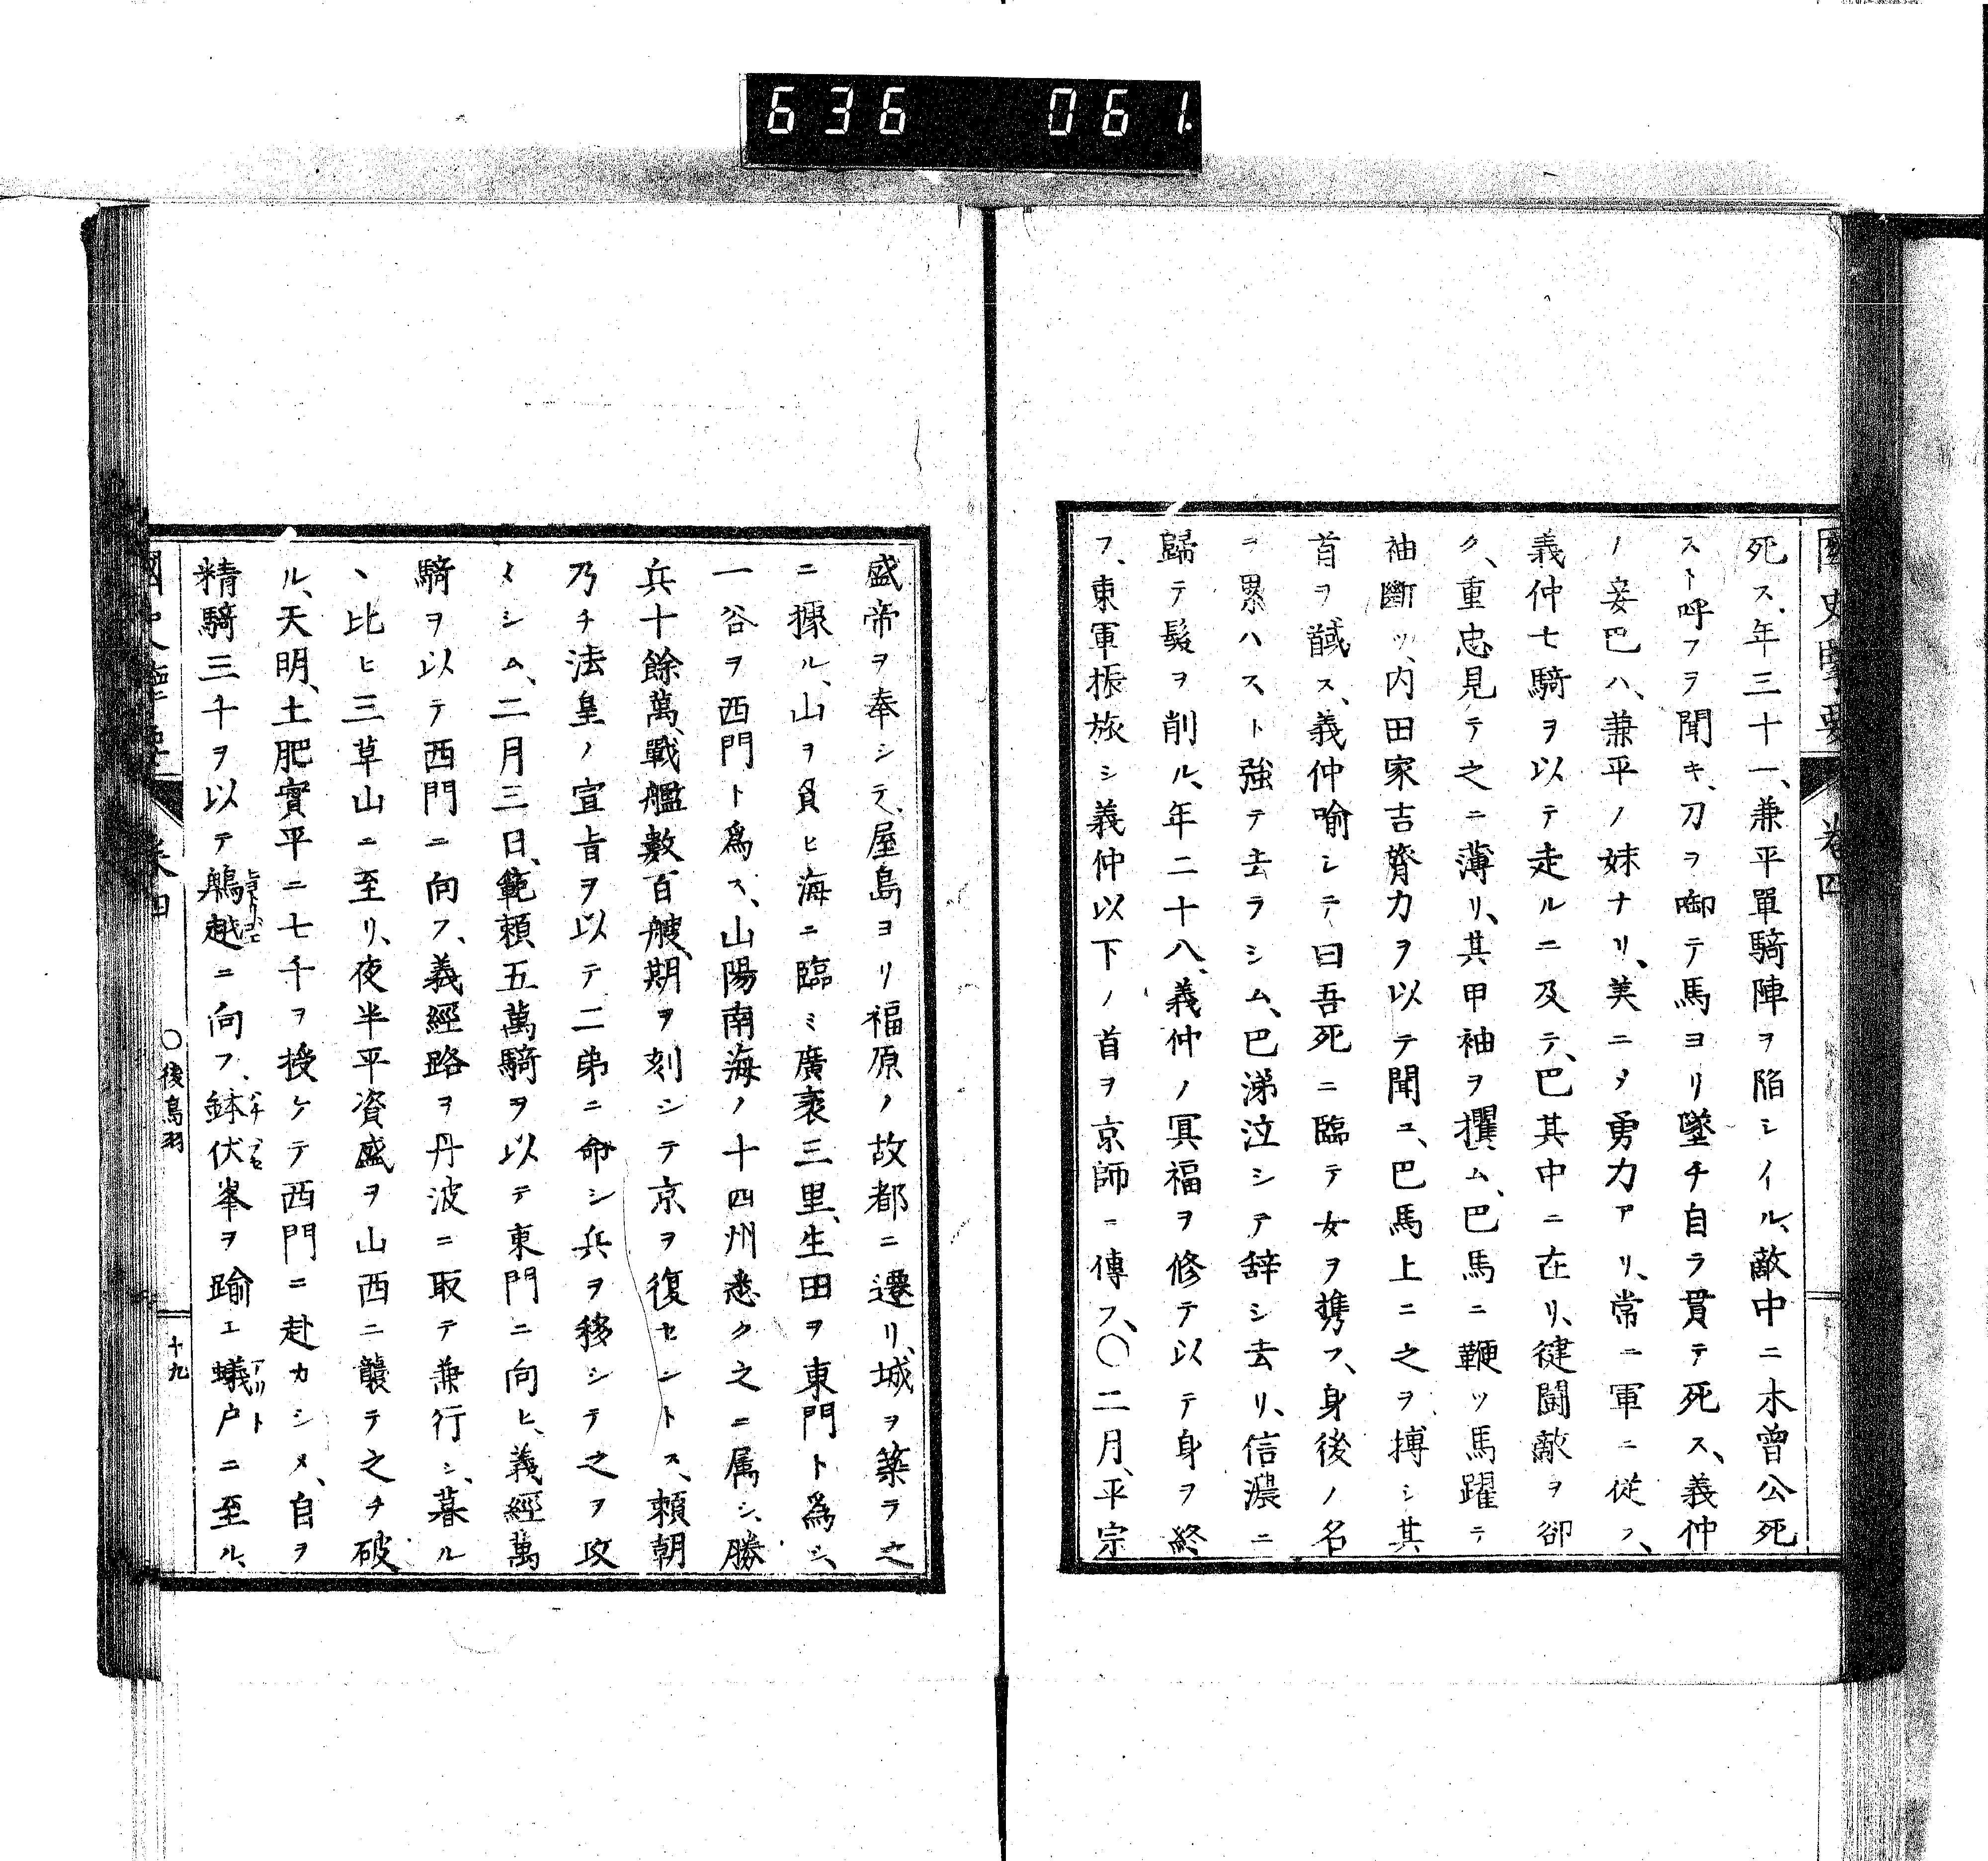 636 061
死ス、年三十一、兼平單騎陣ヲ陷シイル、敵中ニ木曾公死
スト呼フヲ聞キ、刀ヲ啣テ馬ヨリ墜チ自ラ貫テ死ス、義仲
ノ妾巴ハ、兼平ノ妹ナリ、美ニメ勇力アリ、常ニ軍ニ從フ、
義仲七騎ヲ以テ走ルニ及テ、巴其中ニ在リ、健鬪敵ヲ卻
ク、重忠見テ之ニ薄リ、其甲袖ヲ攫ム、巴馬ニ鞭ツ馬躍テ
袖斷ツ、內田家吉膂力ヲ以テ聞ユ、巴馬上ニ之ヲ搏シ其
首ヲ馘ス、義仲喻シテ曰吾死ニ臨テ女ヲ携フ、身後ノ名
ヲ累ハスト強テ去ラシム、巴涕泣シテ辞シ去リ、信濃ニ
歸テ髮ヲ削ル、年二十八、義仲ノ冥福ヲ修テ以テ身ヲ終
フ、東軍振旅シ義仲以下ノ首ヲ京師ニ傳フ、〇二月、平宗
盛帝ヲ奉シテ、屋島ヨリ福原ノ故都ニ遷リ、城ヲ築ラ之
ニ據ル、山ヲ負ヒ海ニ臨ミ廣袤三里、生田ヲ東門ト爲シ、
一谷ヲ西門ト爲ス、山陽南海ノ十四州悉ク之ニ属シ、勝
兵十餘萬、戰艦數百艘、期ヲ刻シテ京ヲ復セントス、賴朝
乃チ法皇ノ宣旨ヲ以テ二弟ニ命シ兵ヲ移シテ之ヲ攻
メシム、二月三日、範賴五萬騎ヲ以テ東門ニ向ヒ、義經萬
騎ヲ以テ西門ニ向フ、義經路ヲ丹波ニ取テ兼行シ、暮ル
、比ヒ三草山ニ至リ、夜半平資盛ヲ山西ニ襲テ之チ破
ル、天明、土肥實平ニ七千ヲ授ケテ西門ニ赴カシメ、自ヲ
精騎三千ヲ以テ鵯越ニ向フ、鉢伏峯ヲ踰エ蟻戸ニ至ル、
卷四 〇後鳥羽 十九